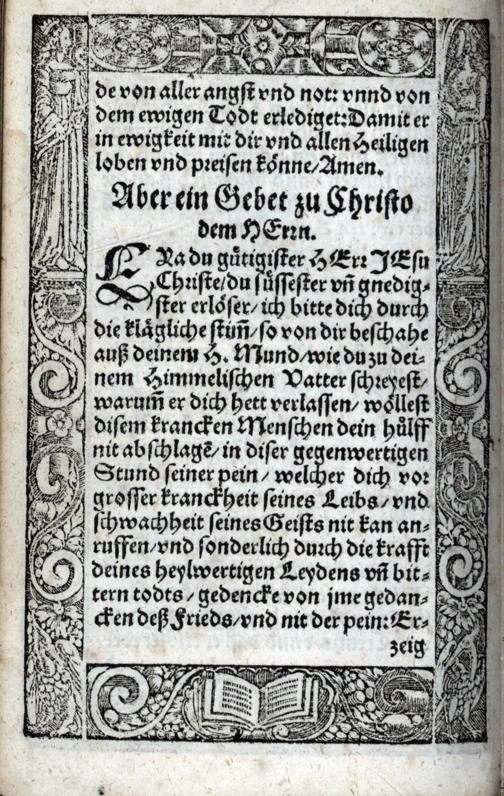 de von aller angst vnd not: vnnd von
dem ewigen Todt erlediget: Damit er
in ewigkeit mit dir vnd allen Heiligen
loben vnd preisen könne/Amen.
Aber ein Gebet zu Christo
dem HErrn.
EYa du gütigister HErr JEsu
Christe/du süssester vñ gnedig-
ster erlöser/ich bitte dich durch
die klägliche stim̃/so von dir beschahe
auß deinem H. Mund/wie du zu dei-
nem Himmelischen Vatter schreyest/
warum̃ er dich hett verlassen/wöllest
disem krancken Menschen dein hülff
nit abschlagẽ/in diser gegenwertigen
Stund seiner pein/welcher dich vor
grosser kranckheit seines Leibs/vnd
schwachheit seines Geists nit kan an-
ruffen/vnd sonderlich durch die krafft
deines heylwertigen Leydens vñ bit-
tern todts/gedencke von jme gedan-
cken deß Frieds/vnd nit der pein: Er-
zeig